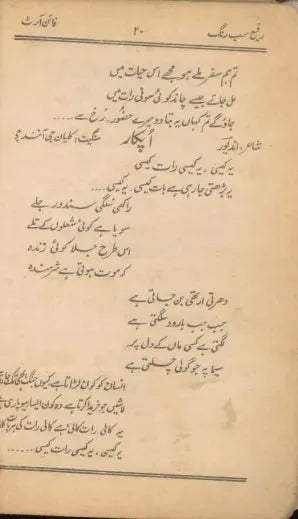 فائن آرٹ ۲۰ رفیع سب رنگ
تم ہم سفر ملے ہو مجھے اس حیات میں
مل جائے جیسے چاند کوئی سونی رات میں
جاؤ گے تم کہاں یہ بتا دو میرے حضور۔ رُخ سے ......
شاعر: اندیور اُپکار سنگیت: کلیان جی آنند جی
یہ کیسی، یہ کیسی رات کیسی
یہ بڑھتی جا رہی ہے بات کیسی۔ یہ کیسی ....
راکھی ننگی سندور جلے
سویا ہے کوئی شعلوں کے تلے
اس طرح جلا کوئی زندہ
کہ موت ہوتی ہے شرمندہ
دھرتی ارتھی بن جاتی ہے
جب جب بارود سلگتی ہے
لگتی ہے کسی ماں کے دل پر
سیما پہ جو گولی چلتی ہے
انسان کو کون لڑاتا ہے کیوں جنگ
لاشیں جو خریدا کرتا ہے وہ کون ایسا بیوپاری ہے
یہ کالی رات کالی ہے کالی رات کی ہر بات
یہ کیسی، یہ کیسی رات کیسی ......